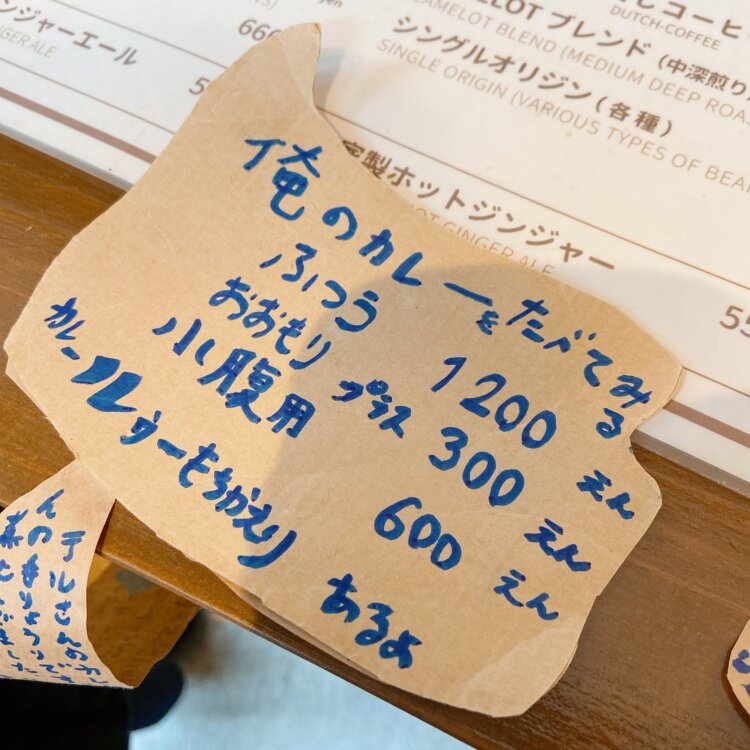 ンジャーエール
GINGER ALE
666
yen
5
しコーヒ
DUTCH-COFFEE
ELOT ブレンド (中深煎り
CAMELOT BLEND (MEDIUM DEEP ROAS
シングルオリジン (各種)
SINGLE ORIGIN (VARIOUS TYPES OF BEA
家製ホットジンジャー
HOT GINGER ALE
55
俺のカレーをたべてみる
ふつう 1200 えん
おおもり プラス 300 えん
小腹用 600 えん
カレールゥーもちかえり あるよ
テルさんのカレ